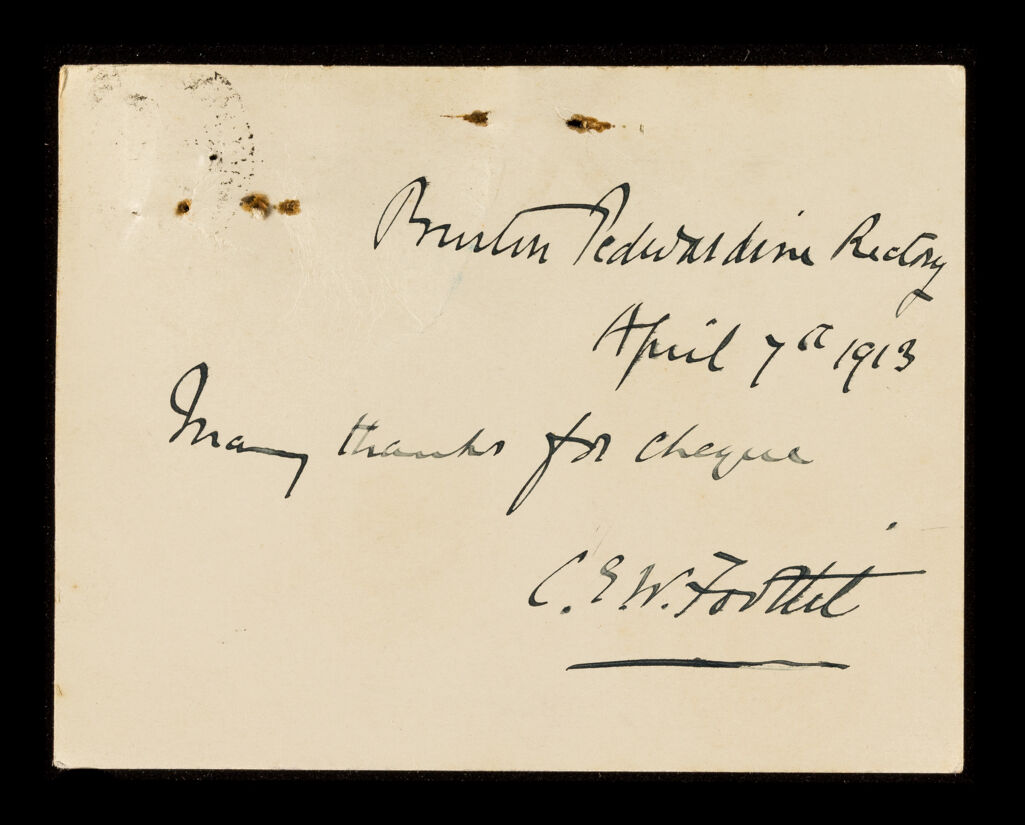 Burton Pedwardine Rectory
April 7th 1913
Many thanks for cheque
C. E. W. Foottit